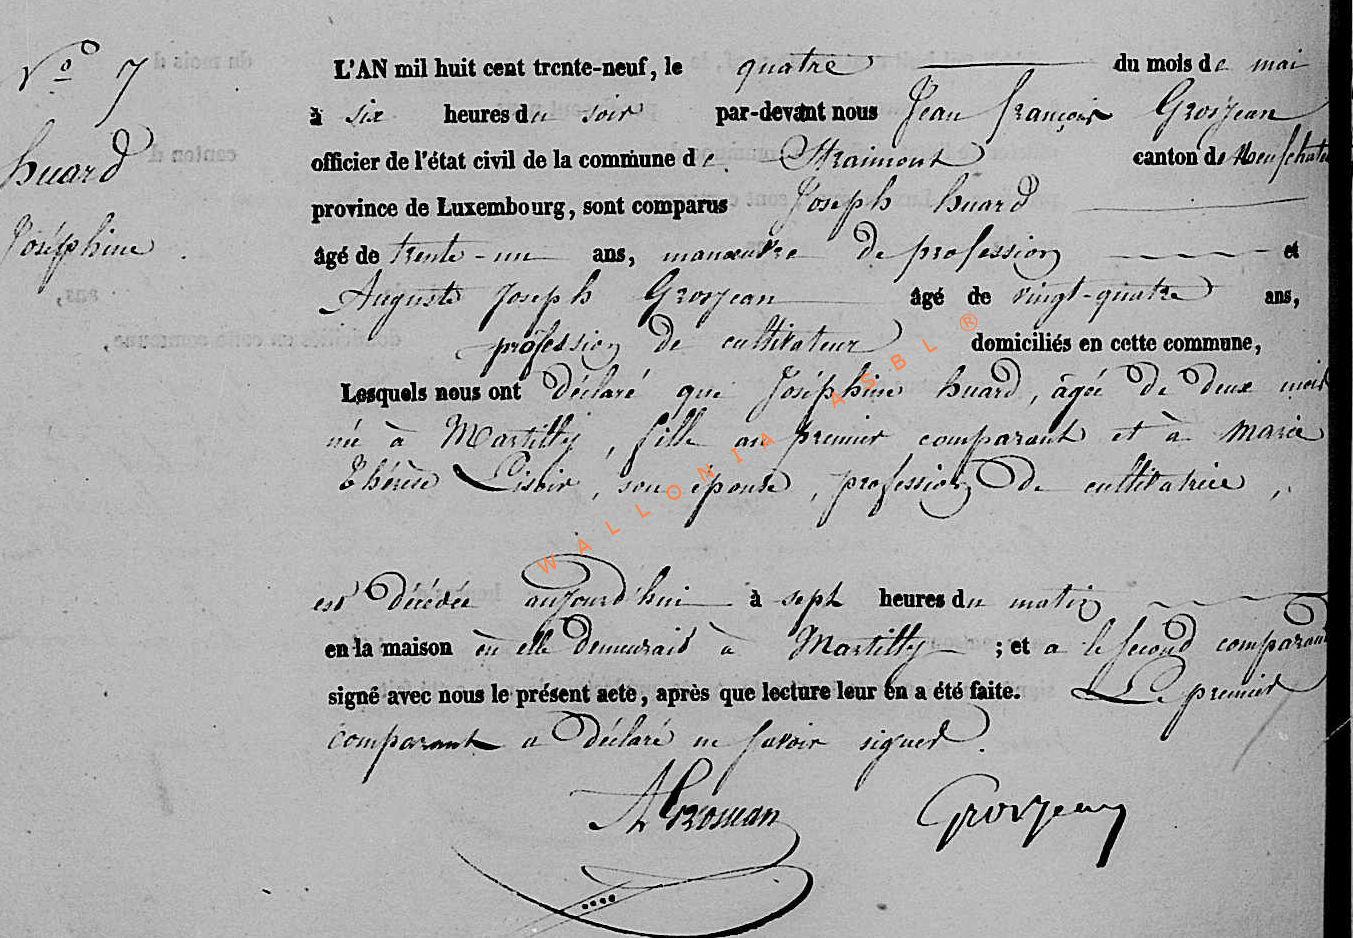 N° 7
huard
Joséphine
L'AN mil huit cent trente-neuf, le quatre du mois de mai
à six heures du soir par-devant nous Jean françois Grosjean
officier de l'état civil de la commune de Straimont canton de Neufchate
province de Luxembourg, sont comparus Joseph huard
âgé de trente-un ans, manœuvre de profession et
Auguste Joseph Grosjean âgé de vingt-quatre ans,
profession de cultivateur domiciliés en cette commune,
Lesquels nous ont déclaré que Joséphine huard, âgée de deux mois
née à Martilly, fille au premier comparant et à marie
Thérèse Lisoir, son épouse, profession de cultivatrice,
est décédée aujourd'hui à sept heures du matin
en la maison où elle demeurait à Martilly ; et a le second comparant
signé avec nous le présent acte, après que lecture leur en a été faite. Le premier
comparant a déclaré ne savoir signer.
A Grosjean Grosjean
WALLONIA ASBL ®